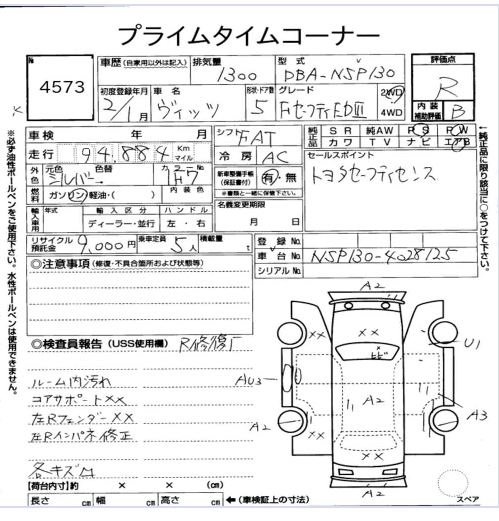 プライムタイムコーナー
No. 4573
車歴 (自家用以外は記入) 排気量 1300 型式 DBA-NSP130
評価点 R
内装補助評価 B
初度登録年月 2/1月 車名 ヴィッツ 形状・ドア数 5 グレード FセーフティEDIII 2WD 4WD
車検 年 月 シフト FAT
純正品 SR 純AW PS PW
カワ TV ナビ エアB
走行 94,884 Km マイル 冷房 AC
セールスポイント
トヨタセーフティセンス
外色 元色 シルバー 色替 カラーNo. 1F7
新車整備手帳(保証書付) 有・無
※書類と一緒に保管下さい。
燃料 ガソリン 軽油・( ) 内装色
名義変更期限
月 日
輸入車用 年式 輸入区分 ハンドル
ディーラー・並行 左・右
リサイクル預託金 9,000円 乗車定員 5人 積載量 t
登録No.
車台No. NSP130-4028125
シリアルNo.
◎注意事項 (修復・不具合箇所および状態等)
◎検査員報告 (USS使用欄) R修復厂
ルーム内汚れ
コアサポート××
左Rフェンダー××
左Rインパネ修正
各キズ凹
A2
××
U1
AU3
A2
A2
A3
××
A2
【荷台内寸】 × × (cm)
長さ cm 幅 cm 高さ cm ←(車検証上の寸法)
スペア
※必ず油性ボールペンをご使用下さい。水性ボールペンは使用できません。
←純正品に限り該当に○をつけて下さい。